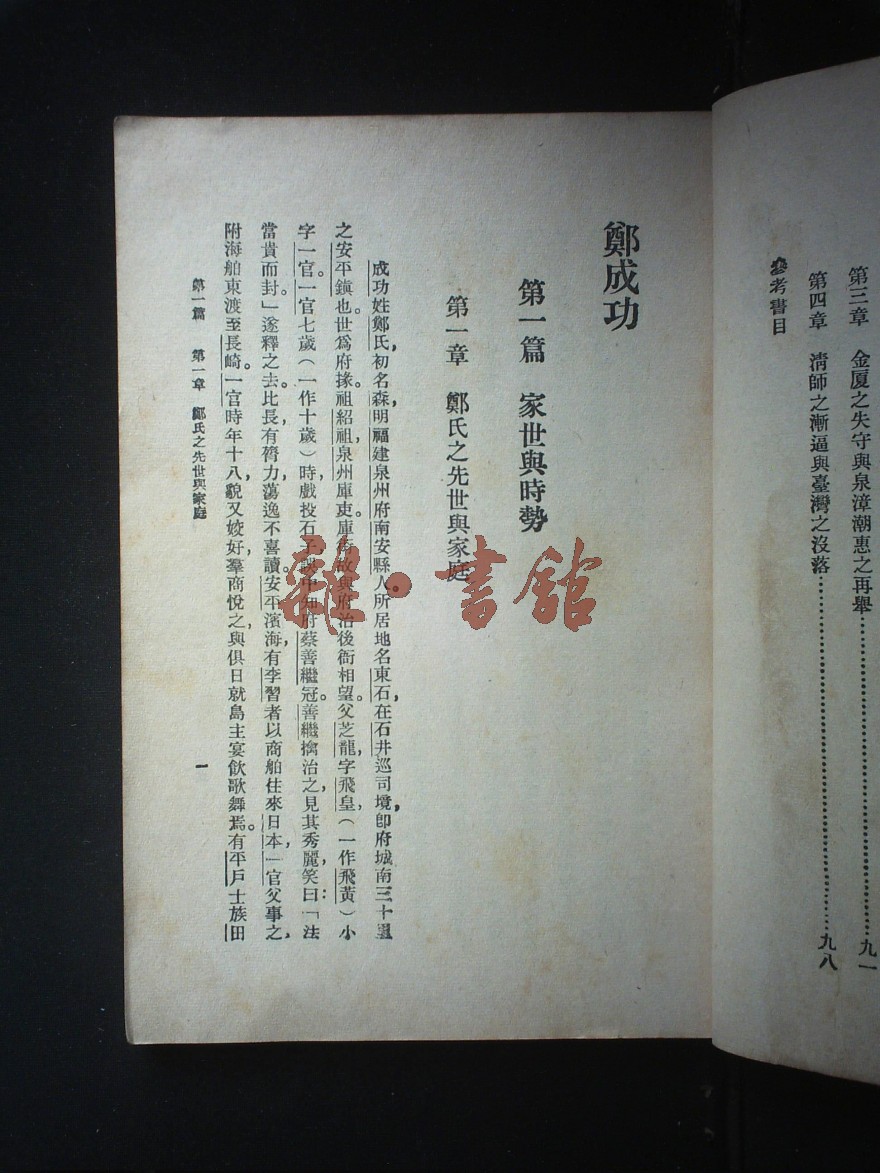 第三章　金厦之失守與泉漳潮惠之再舉……………………九一
第四章　清師之漸逼與臺灣之沒落……………………九八
參考書目
鄭成功
第一篇　家世與時勢
第一章　鄭氏之先世與家庭
成功姓鄭氏，初名森，明福建泉州府南安縣人。所居地名東石，在石井巡司境，卽府城南三十里
之安平鎮也。世爲府掾。祖紹祖，泉州庫吏。庫衙故與府治後衙相望。父芝龍，字飛皇，（一作飛黃）小
字一官。一官七歲（一作十歲）時，戲投石子，誤中知府蔡善繼冠。善繼擒治之，見其秀麗，笑曰：「法
當貴而封。」遂釋之去。比長，有膂力，蕩逸不喜讀。安平濱海，有李習者，以商舶住來日本，一官父事之，
附海舶東渡至長崎。一官時年十八，貌又姣好，羣商悅之，與俱日就島主宴飲歌舞焉。有平戶士族田
第一篇　第一章　鄭氏之先世與家庭
一
雜·書館